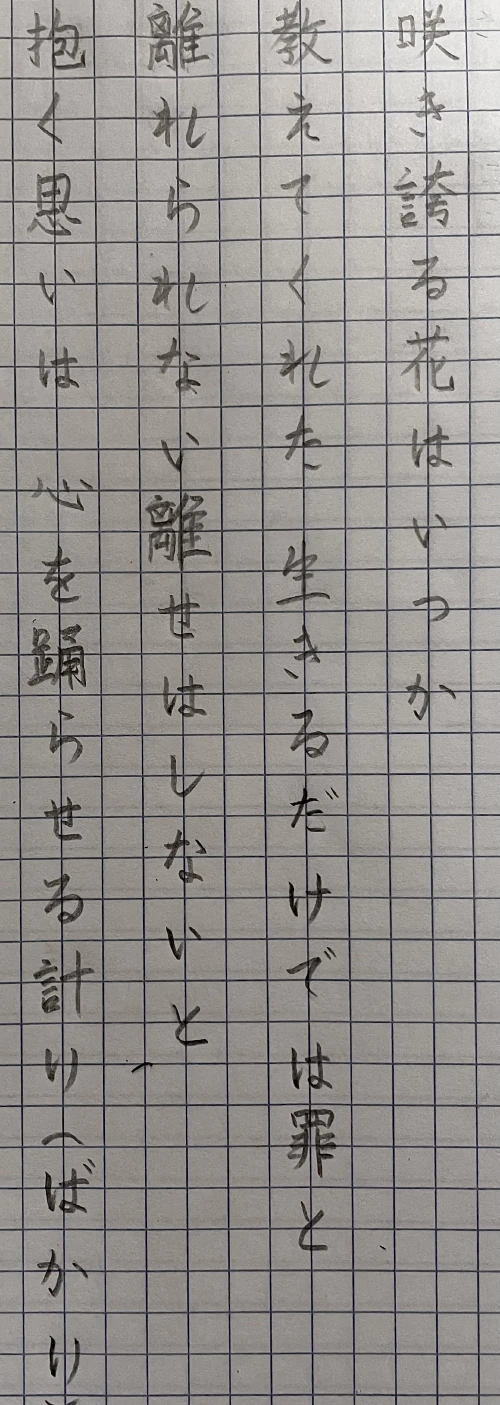 咲き誇る花はいつか
教えてくれた 生きるだけでは罪と
離れられない離せはしないと
抱く思いは 心を踊らせる計り(ばかり